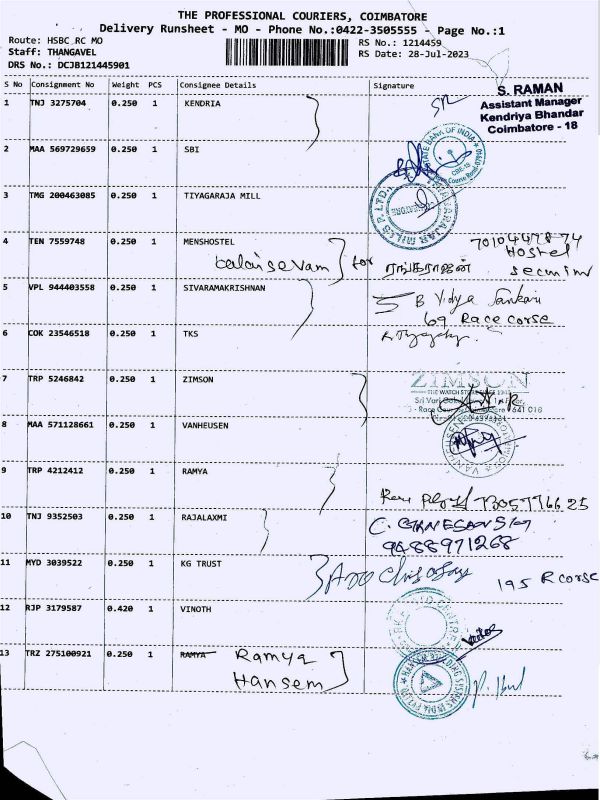 THE PROFESSIONAL COURIERS, COIMBATORE
Delivery Runsheet - MO - Phone No.:0422-3505555 - Page No.:1
Route: HSBC_RC MO
RS No.: 1214459
Staff: THANGAVEL
RS Date: 28-Jul-2023
DRS No.: DCJB121445901
S No Consignment No Weight PCS Consignee Details Signature
S. RAMAN
Assistant Manager
Kendriya Bhandar
Coimbatore - 18
1 TNJ 3275704 0.250 1 KENDRIA
2 MAA 569729659 0.250 1 SBI
STATE BANK OF INDIA
3 TMG 200463085 0.250 1 TIYAGARAJA MILL
4 TEN 7559748 0.250 1 MENSHOSTEL
7010447874
Hostel
for ரங்கராஜன்
5 VPL 944403558 0.250 1 SIVARAMAKRISHNAN
B Vidya Sankari
69 Race corse
6 COK 23546518 0.250 1 TKS
7 TRP 5246842 0.250 1 ZIMSON
ZIMSON
THE WATCH STORE SINCE 1948
8 MAA 571128661 0.250 1 VANHEUSEN
9 TRP 4212412 0.250 1 RAMYA
10 TNJ 9352503 0.250 1 RAJALAXMI
C. GANESAN
9488971268
11 MYD 3039522 0.250 1 KG TRUST
195 R corse
12 RJP 3179587 0.420 1 VINOTH
13 TRZ 275100921 0.250 1 RAMYA Ramya
Hansem